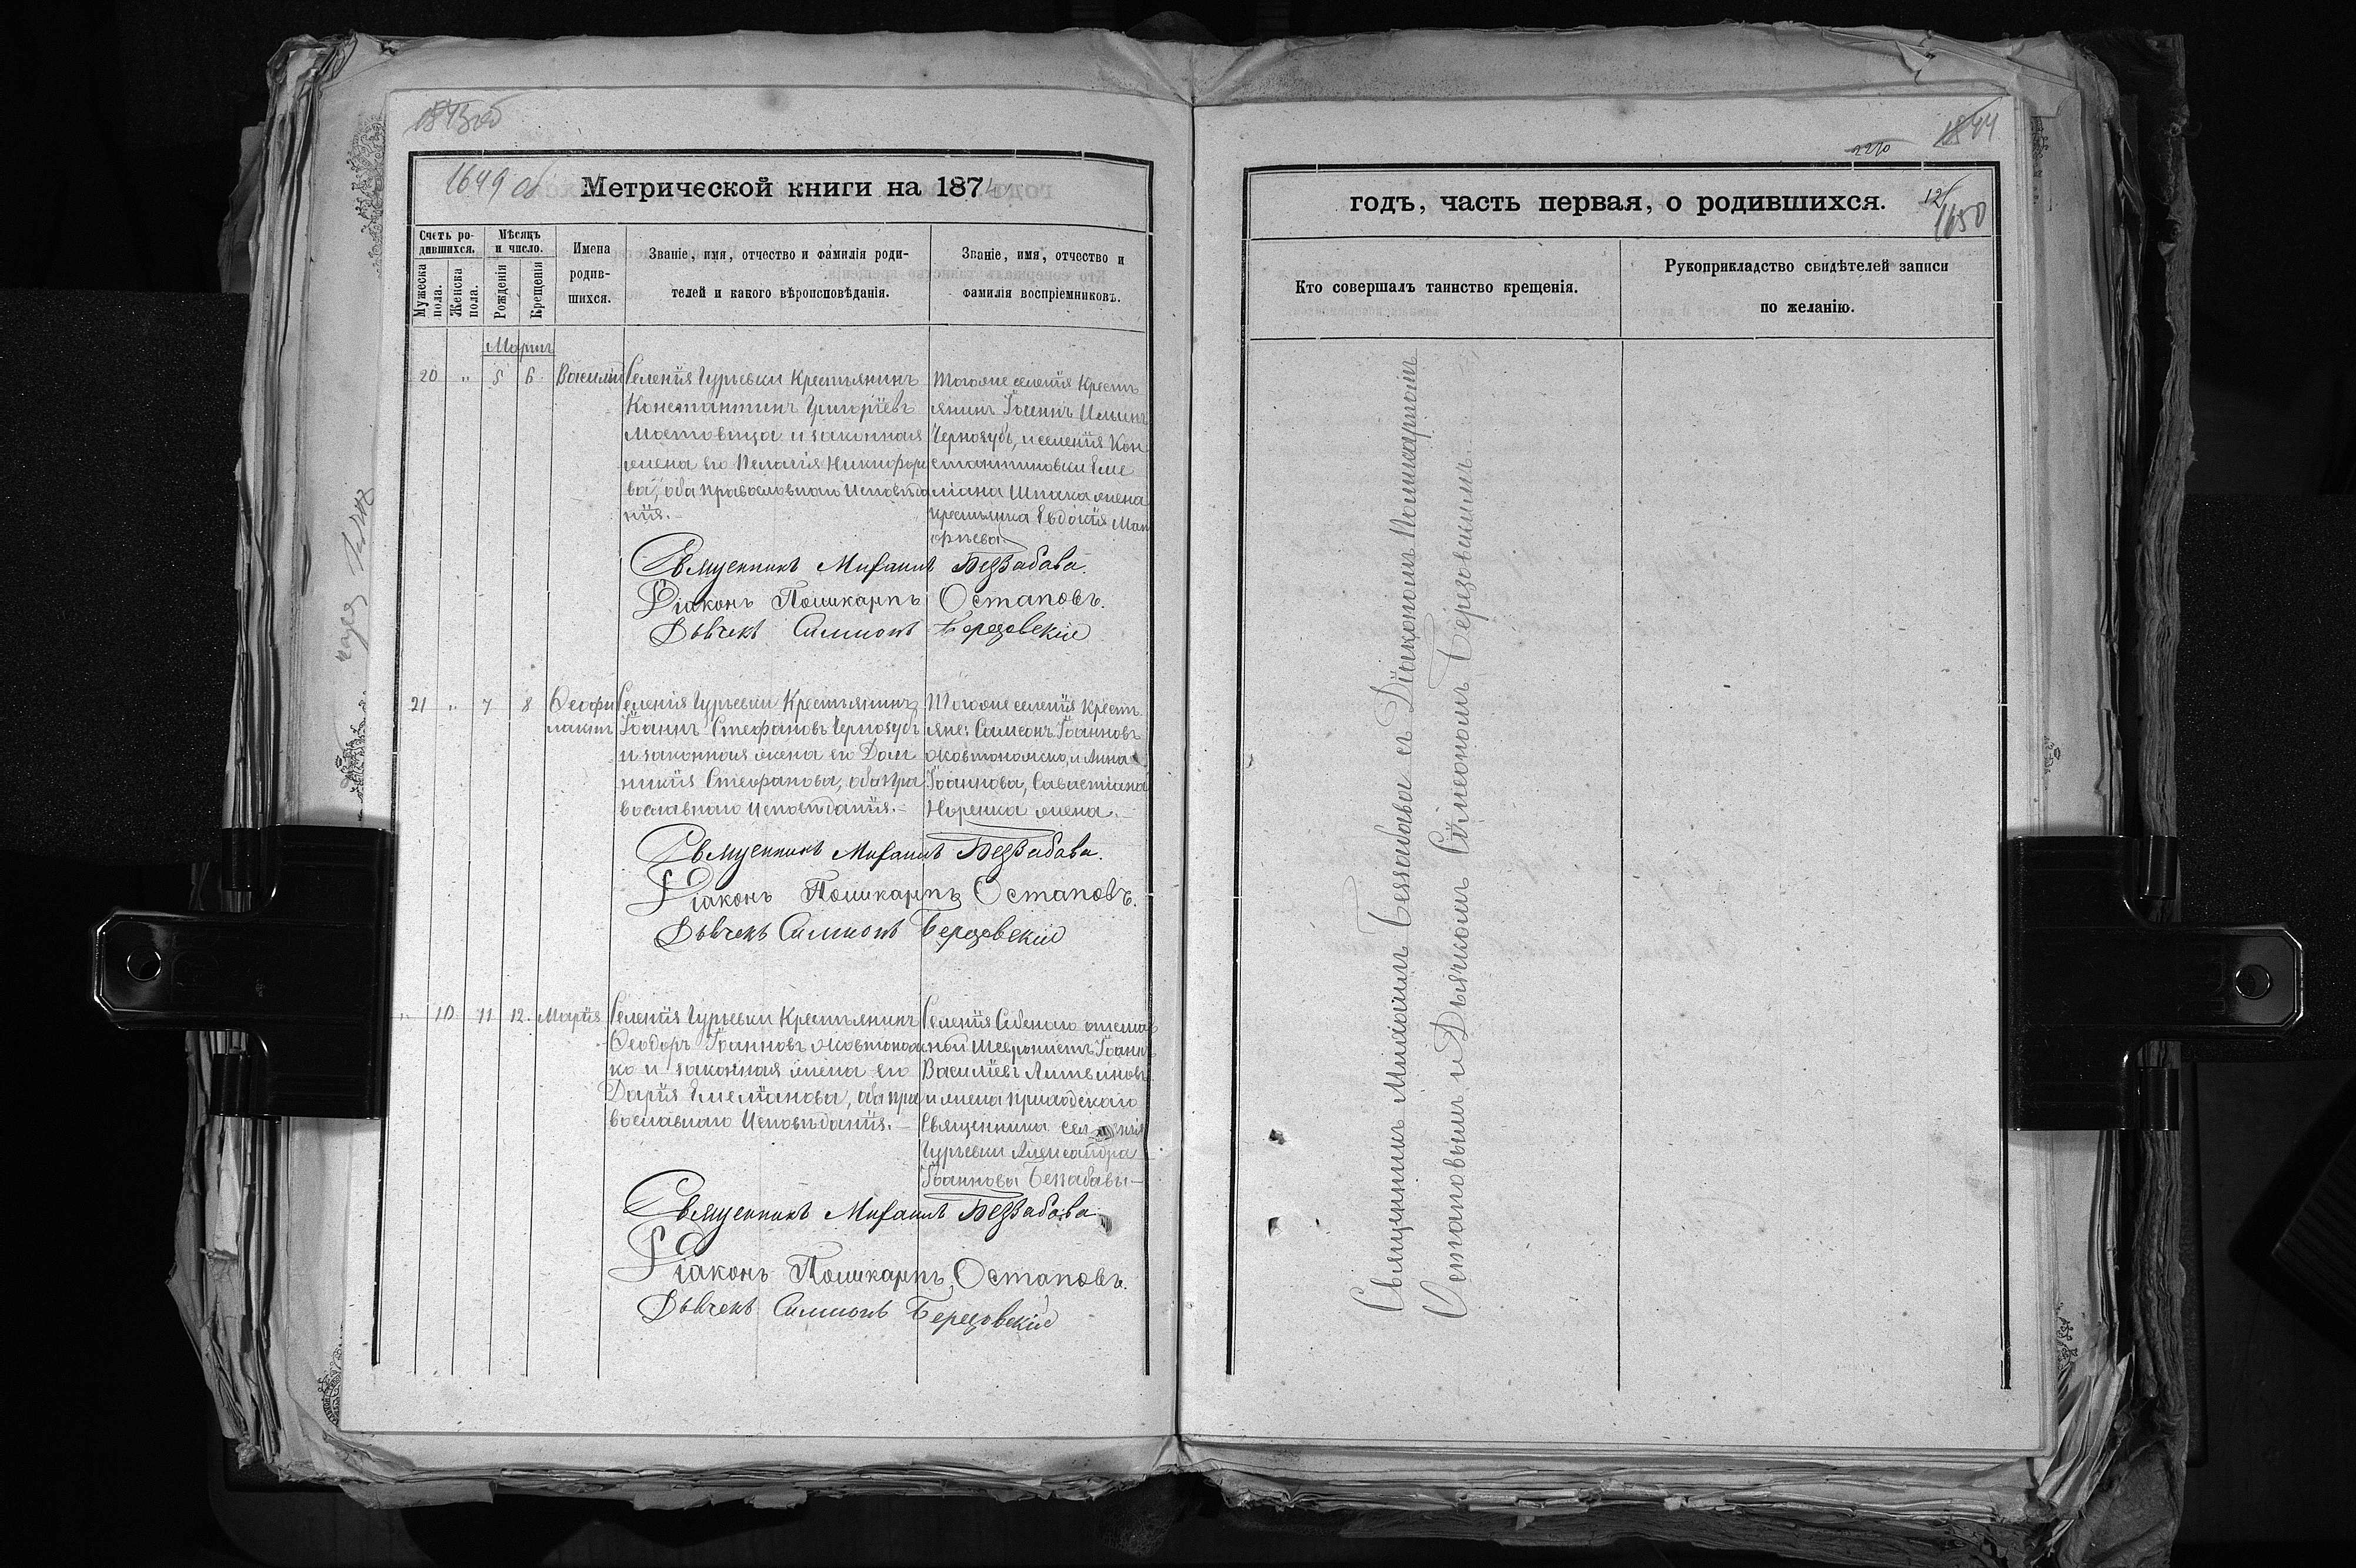 1649 об
Метрической книги на 187
Счетъ ро-
дившихся.
Мѣсяцъ
и число.
Мужеска
пола.
Женска
пола.
Рожденія
Крещенія
Имена
родив-
шихся.
Званіе, имя, отчество и фамилія роди-
телей и какого вѣроисповѣданія.
Званіе, имя, отчество и
фамилія воспріемниковъ.
Мартъ
20 „ 5 6. Василій
Селенія Гурьевки Крестьянинъ
Константинъ Григоріевъ
и законная
жена его Пелагія Никифоро
ва, оба православнаго Исповѣда
нія.-
Тогоже селенія Крест
янинъ Іоаннъ Ильинъ
Чернозубъ, и селенія Кон
стантиновки Еме
ліана Шпака жена
крестьянка Евдокія
Священникъ Михаилъ Беззабава.
Діаконъ Поликарпъ Остаповъ.
Дьячекъ Симеонъ Березовскій
21 „ 7 8 Феофи
лактъ
Селенія Гурьевки Крестьянинъ
Іоаннъ Стефановъ Чернозубъ
и законная жена его Дом
никія Стефанова, оба пра
вославнаго Исповѣданія.-
Тогоже селенія Крест
яне: Симеонъ Іоанновъ
Жовтоножко, и Анна
Іоаннова, Савастіана
жена.-
Священникъ Михаилъ Беззабава.
Діаконъ Поликарпъ Остаповъ.
Дьячекъ Симеонъ Березовскій
„ 10 11 12. Марія
Селенія Гурьевки Крестьянинъ
Феодоръ Іоанновъ Жовтонож
ко и законная жена его
Дарія Емеліанова, оба пра
вославнаго Исповѣданія.-
Селенія отстав
ной Іоаннъ
Василіевъ Литвиновъ
и жена приходскаго
Священника селенія
Гурьевки Александра
Іоаннова Беззабавы-
Священникъ Михаилъ Беззабава
Діаконъ Поликарпъ Остаповъ.
Дьячекъ Симеонъ Березовскій
1844
2270
годъ, часть первая, о родившихся.
12
1650
Кто совершалъ таинство крещенія.
Рукоприкладство свидѣтелей записи
по желанію.
Священникъ Михаилъ Беззабава съ Діакономъ Поликарпомъ
Остаповымъ и Дьячкомъ Сѵмеономъ Березовскимъ.